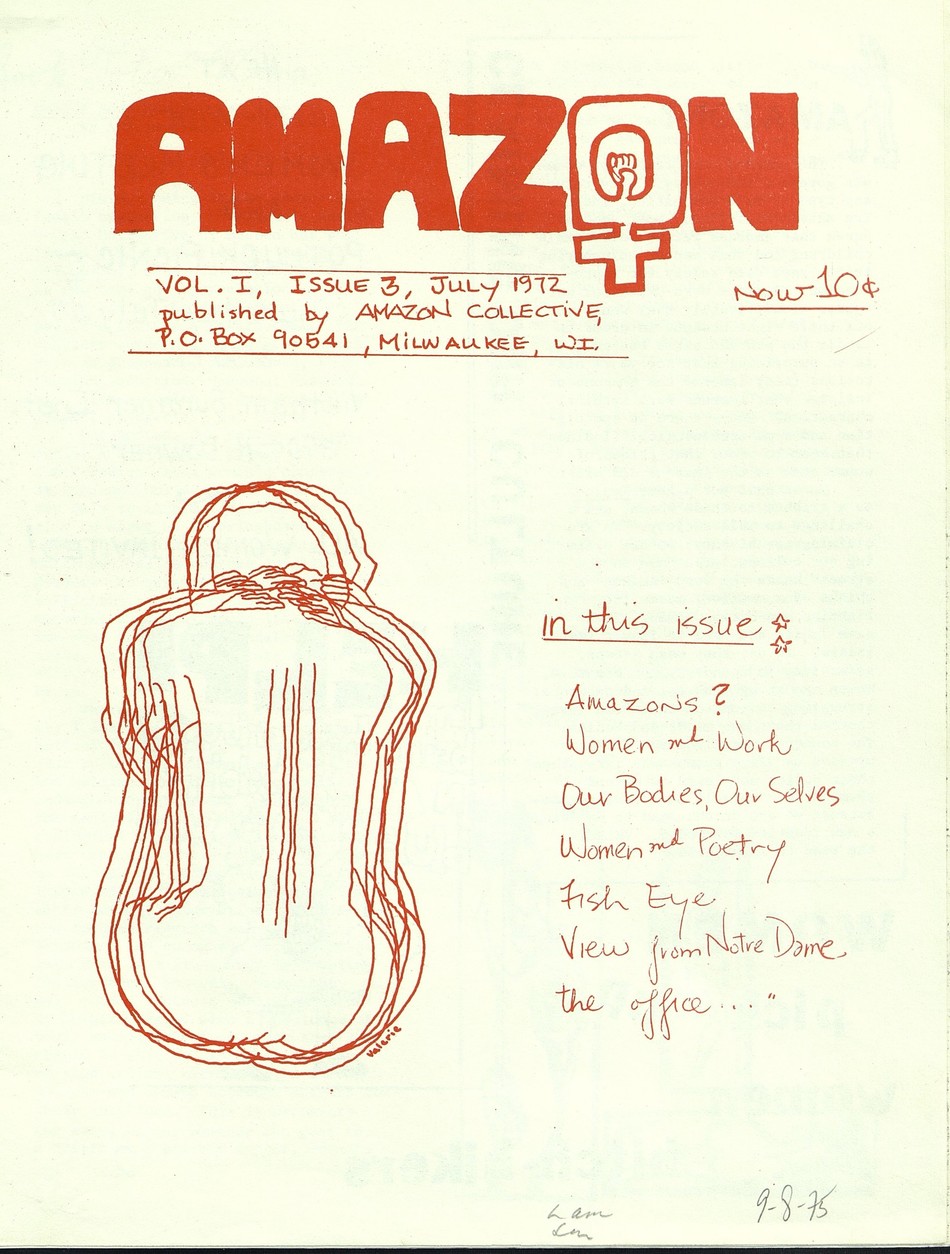 AMAZON
VOL. I, ISSUE 3, JULY 1972
published by AMAZON COLLECTIVE,
P.O. BOX 90541, MILWAUKEE, WI.
Now 10¢
in this issue
Amazons?
Women and Work
Our Bodies, Our Selves
Women and Poetry
Fish Eye
View from Notre Dame
the office..."
Valerie
9-8-75